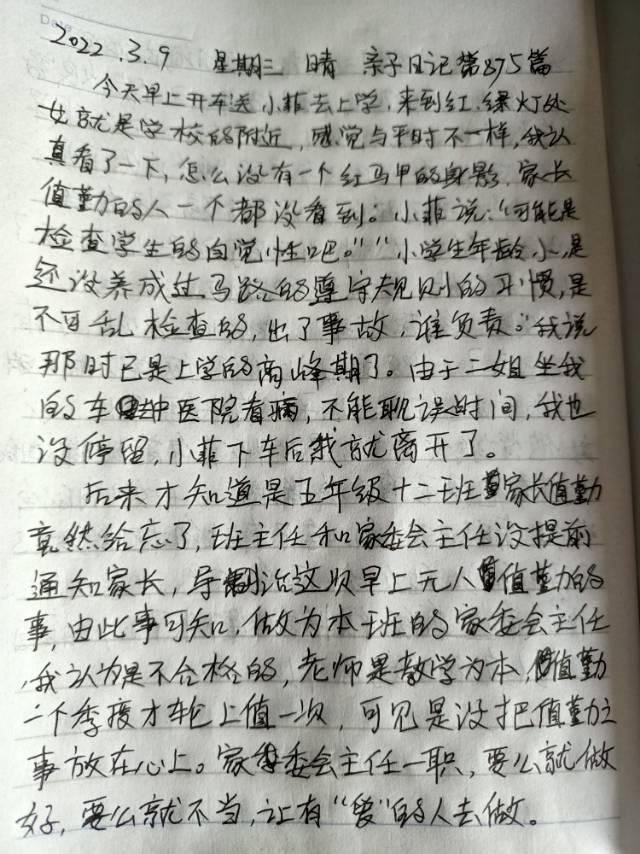 2022.3.9 星期三 晴 亲子日记第875篇
今天早上开车送小菲去上学,来到红绿灯处
也就是学校的附近,感觉与平时不一样,我认
真看了一下,怎么没有一个红马甲的身影,家长
值勤的人一个都没看到。小菲说:“可能是
检查学生的自觉性吧。”“小学生年龄小,是
还没养成过马路的遵守规则的习惯,是
不可乱检查的,出了事故,谁负责。”我说
那时已是上学的高峰期了。由于二姐坐我
的车 中医院看病,不能耽误时间,我也
没停留,小菲下车后我就离开了。
后来才知道是五年级十二班家长值勤
竟然给忘了,班主任和家委会主任没提前
通知家长,导致这次早上无人值勤的
事,由此事可知,做为本班的家委会主任
,我认为是不合格的,老师是教学为本,值勤
一个季度才轮上值一次,可见是没把值勤之
事放在心上。家委会主任一职,要么就做
好,要么就不当,让有“爱”的人去做。